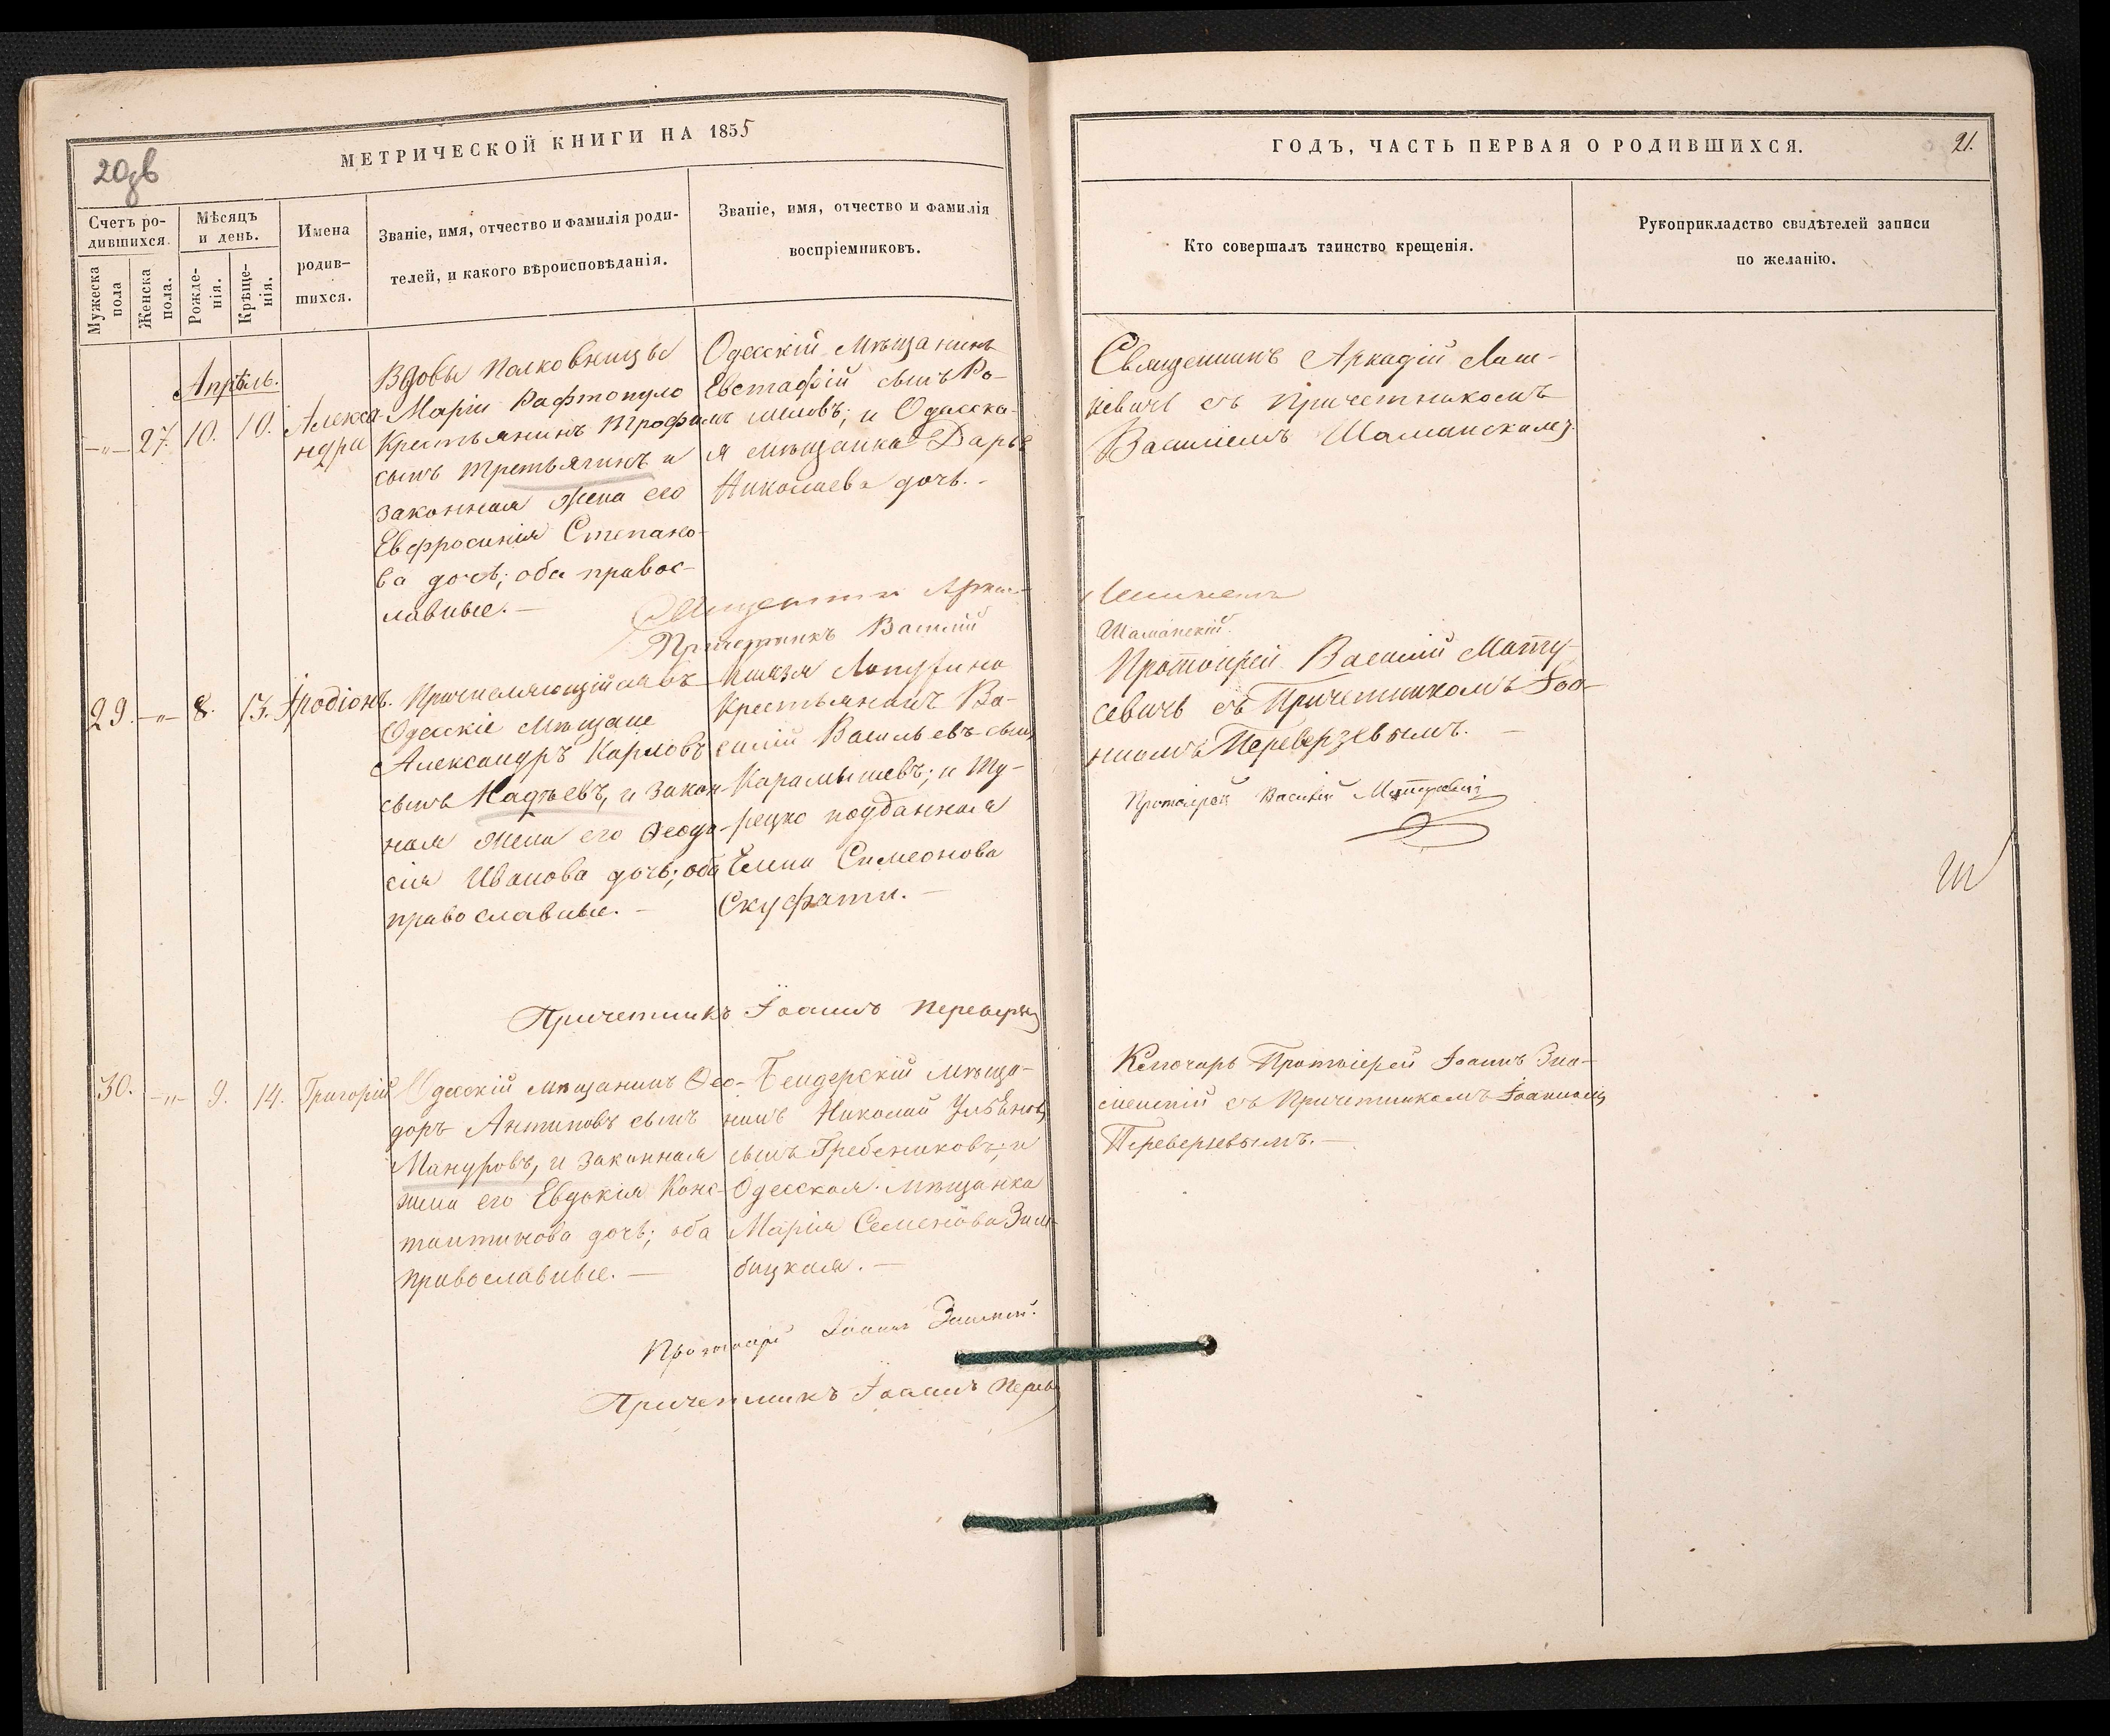 20зв
МЕТРИЧЕСКОЙ КНИГИ НА 1855
Счетъ ро-
дившихся.
Мужеска
пола
Женска
пола.
Мѣсяцъ
и день.
Рожде-
нія.
Креще-
нія.
Имена
родив-
шихся.
Званіе, имя, отчество и фамилія роди-
телей, и какого вѣроисповѣданія.
Званіе, имя, отчество и фамилія
воспріемниковъ.
Апрѣль.
—„— 27. 10. 10.
Алекса-
ндра
Вдовы Полковницы
Маріи Рафтопуло
Крестьянинъ Трофимъ
сынъ Третьягинъ и
законная жена его
Евфросинія Степано-
ва дочь; оба правос-
лавные. —
Одесскій мѣщанинъ
Евстафій сынъ Ро-
миловъ; и Одесска-
я мѣщанка Дарья
Николаева дочь. -
Причетникъ Василій
29. —„— 8. 13. Иродіонъ.
Причисляющійся въ
Одесскіе мѣщане
Александръ Карповъ
сынъ Кадьевъ, и закон-
ная жена его Феодо-
сія Иванова дочь; оба
православные. —
Князя Лопухина
Крестьянинъ Ва-
силій Васильевъ сынъ
Карамышевъ; и Ту-
рецко подданная
Елена Симеонова
Скуфати. —
Причетникъ Іоаннъ Переверз
30. —„— 9. 14. Григорій
Одесскій мѣщанинъ Фео-
доръ Антиповъ сынъ
Мануровъ, и законная
жена его Евдокія Конс-
тантинова дочь; оба
православные. —
Бендерскій мѣща-
нинъ Николай Ульяновъ
сынъ Гребениковъ; и
Одесская мѣщанка
Марія Семенова Зам-
бицкая. —
Протоіерей Іоаннъ Знаменскій.
Причетникъ Іоаннъ Перев
ГОДЪ, ЧАСТЬ ПЕРВАЯ О РОДИВШИХСЯ.
21.
Кто совершалъ таинство крещенія.
Рукоприкладство свидѣтелей записи
по желанію.
Священникъ Аркадій Лаш-
кевичъ съ Причетникомъ
Василіемъ Шаманскимъ.
Шаманскій.
Протоіерей Василій Мату-
севичъ съ Причетникомъ Іоа-
нномъ Переверзевымъ. —
Протоіерей Василій Матусевичъ
Ключарь Протоіерей Іоаннъ Зна-
менскій съ Причетникомъ Іоанномъ
Переверзевымъ. —